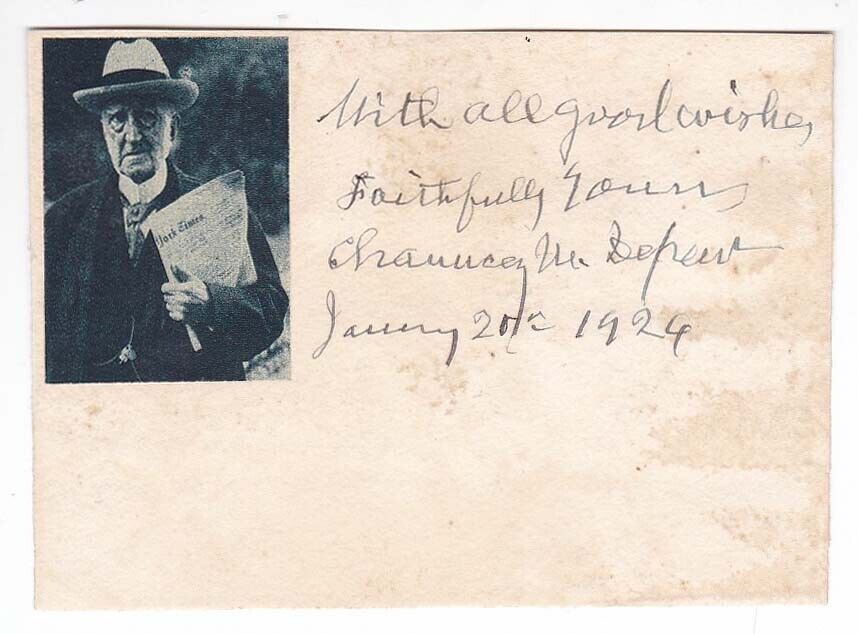 York Times
With all good wishes
Faithfully Yours
Chauncey M. Depew
January 20th 1924